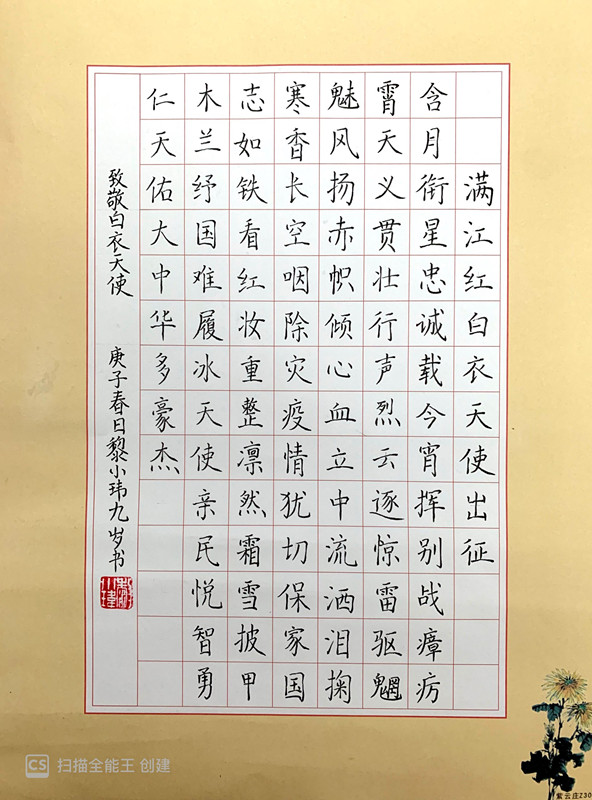 满江红白衣天使出征
含月衔星忠诚载今宵挥别战瘴疠
霄天义贯壮行声烈云逐惊雷驱魍
魅风扬赤帜倾心血立中流洒泪掬
寒香长空咽除灾疫情犹切保家国
志如铁看红妆重整凛然霜雪披甲
木兰纾国难履冰天使亲民悦智勇
仁天佑大中华多豪杰
致敬白衣天使 庚子春日黎小玮九岁书
CS 扫描全能王 创建
紫云庄230